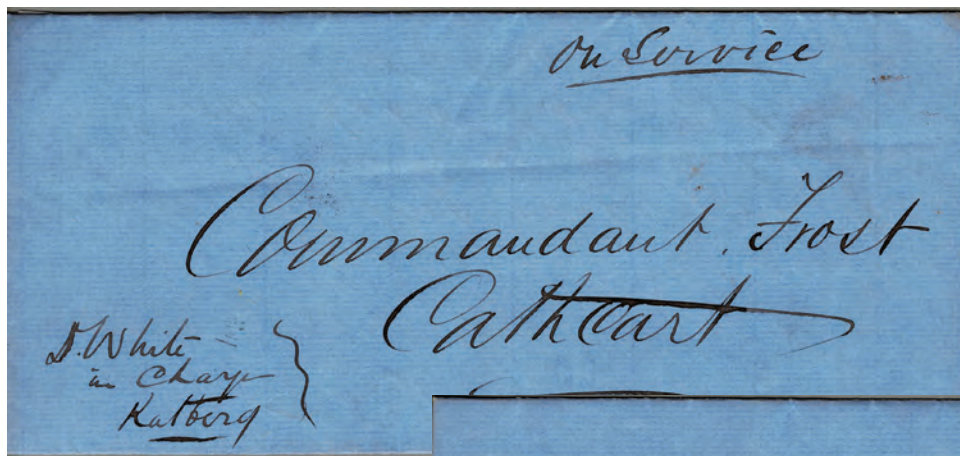 On Service
Commandant. Frost
Cathcart
D. White
in Charge
Katberg